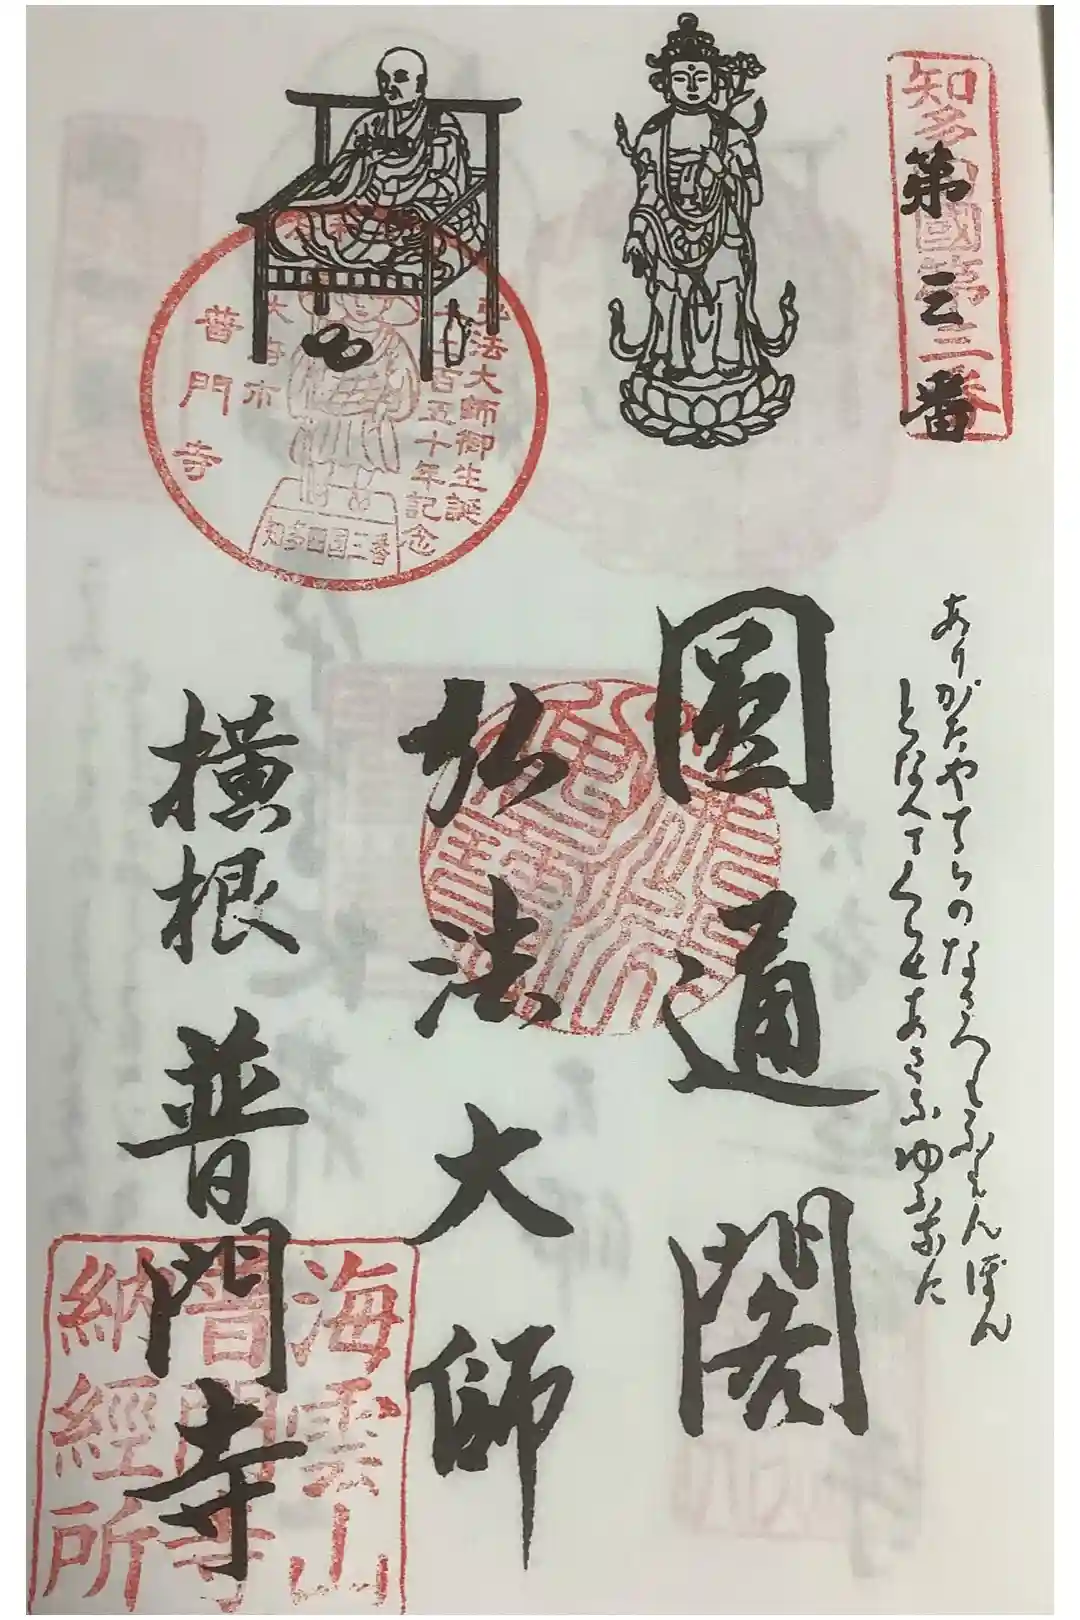 知多四國第三番
第三番
ありがたやてらのなさへもふもんぼん
となへてくらせあさなゆふなに
圓通閣
弘法大師
弘法大師御生誕
千二百五十年記念
大府市
普門寺
知多四国三番
横根 普門寺
海雲山
普門寺
納經所